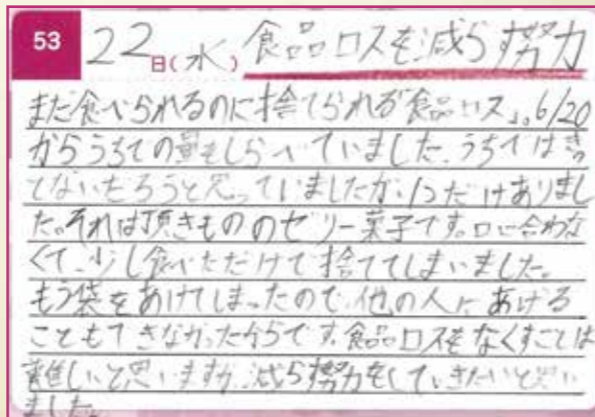 53 22日(水) 食品ロスを減らす努力
まだ食べられるのに捨てられる「食品ロス」。6/20
からうちでの量もしらべていました。うちではきっ
とないだろうと思っていましたが、1つだけありまし
た。それは頂きもののゼリー菓子です。口に合わな
くて、少し食べただけで捨ててしまいました。
もう袋をあけてしまったので、他の人にあげる
こともできなかったからです。食品ロスをなくすことは
難しいと思いますが、減らす努力をしていきたいと思い
ました。